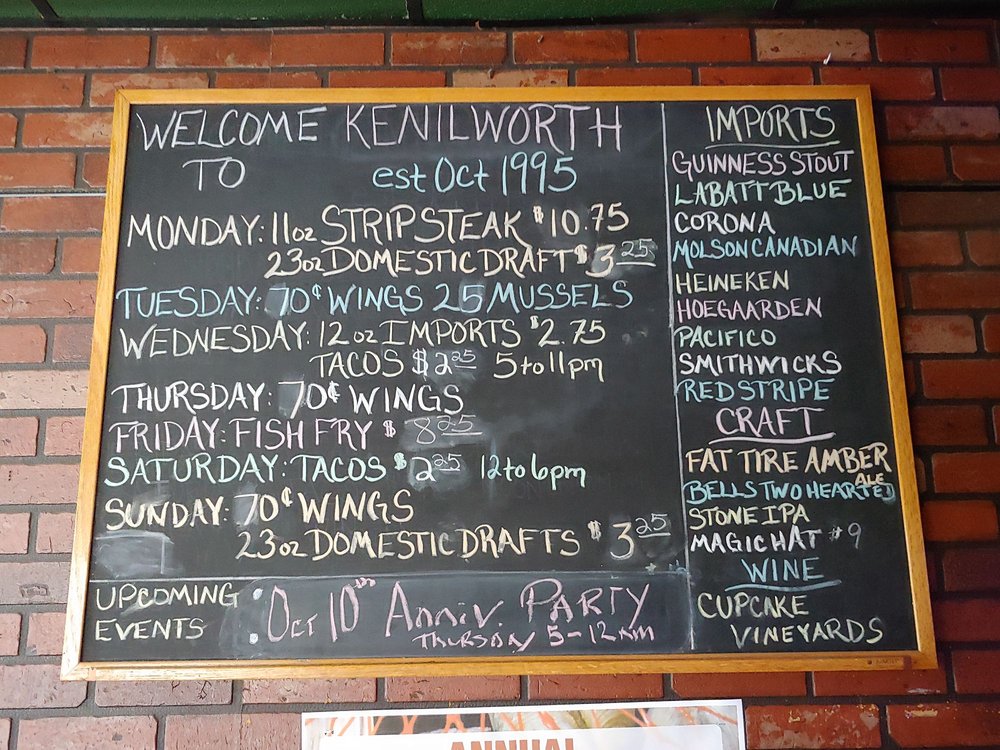 WELCOME KENILWORTH
TO est Oct 1995
MONDAY: 11oz STRIP STEAK $10.75
23oz DOMESTIC DRAFT $3.25
TUESDAY: 70¢ WINGS 25 MUSSELS
WEDNESDAY: 12oz IMPORTS $2.75
TACOS $2.25 5 to 11pm
THURSDAY: 70¢ WINGS
FRIDAY: FISH FRY $8.25
SATURDAY: TACOS $2.25 12 to 6pm
SUNDAY: 70¢ WINGS
23oz DOMESTIC DRAFTS $3.25
UPCOMING EVENTS
: Oct 10th Anniv. PARTY
THURSDAY 5-12AM
IMPORTS
GUINNESS STOUT
LABATT BLUE
CORONA
MOLSON CANADIAN
HEINEKEN
HOEGAARDEN
PACIFICO
SMITHWICKS
RED STRIPE
CRAFT
FAT TIRE AMBER ALE
BELLS TWO HEARTED
STONE IPA
MAGIC HAT #9
WINE
CUPCAKE
VINEYARDS
ANNUAL